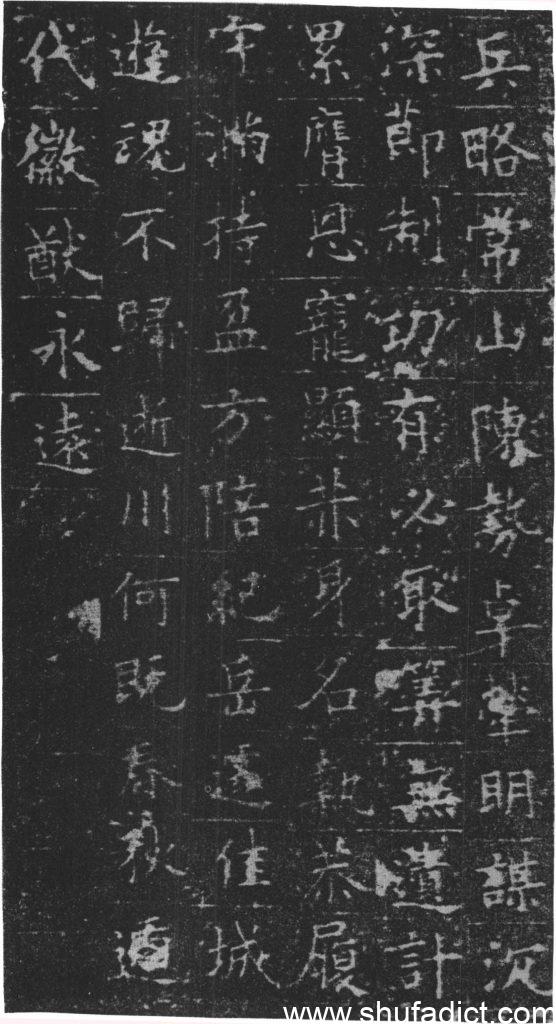 兵略常山陳勢卓犖明謀沉
深節制功有必取筭無遺計
累膺恩寵顯赫身名執恭履
守滿持盈方陪紀岳遽佳城
遊魂不歸逝川何既春秋遞
代徽猷永遠
www.shufadict.com